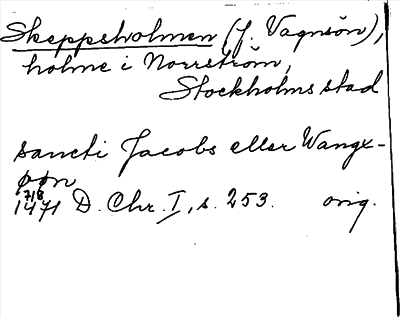 Skeppsholmen (f. Vagnsön),
holme i Norrström,
Stockholms stad
sancti Jacobs eller Wangx-
øøn
1471 7/8 D. Chr. I, s. 253. orig.